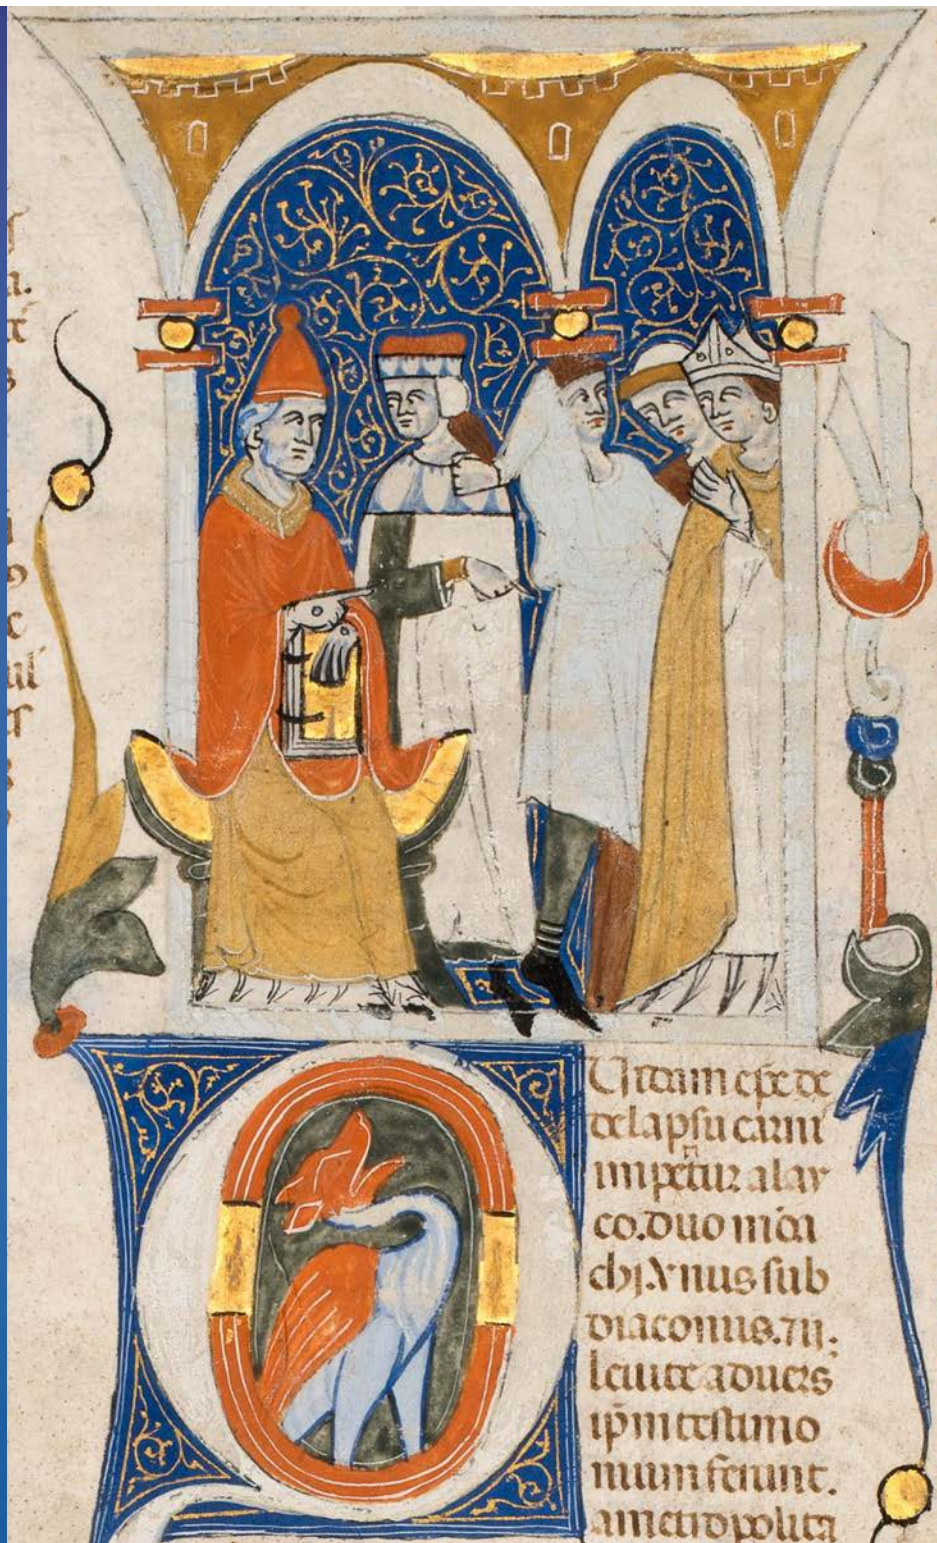 Uidam epc de
de lapsu carni
impetitur a lay
co. duo mona
chi. Vnus sub
diaconus. 7 ii.
leuite aduers
ipm testimo
nium ferunt.
a metropolita